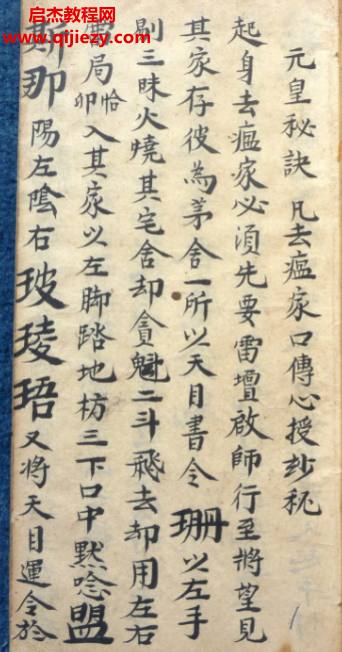 启杰教程网
www.qijiezy.com
元皇秘訣 凡去瘟家口傳心授玅秘
起身去瘟家必須先要雷壇啟師行至將望見
其家存彼為茅舍一所以天目書令 珊 以左手
剔三昧火燒其宅舍却貪魁二斗飛去却用左右
雷局 恰卯 入其家以左脚踏地枋三下口中黙唸盟
斯那 陽左陰右 玻琜珸 又将天目運令於